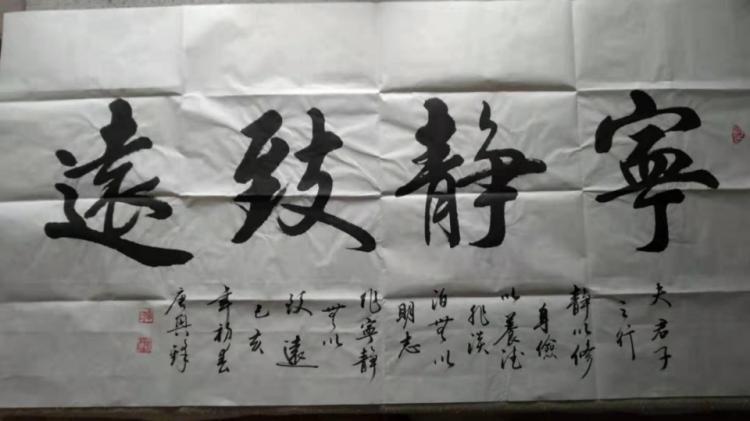 寧靜致遠
夫君子
之行
靜以修
身儉
以養德
非淡
泊無以
明志
非寧靜
無以
致遠
己亥
年初春
唐興鋒